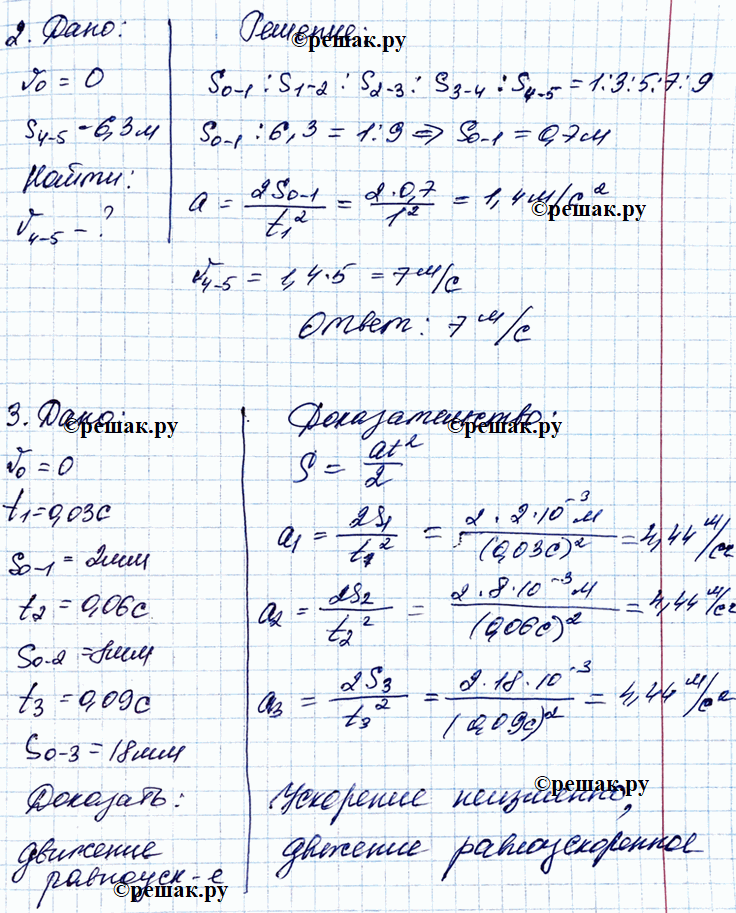 2. Дано:
v₀ = 0
S₄₋₅ - 6,3 м
Найти:
v₄₋₅ - ?
Решение:
©решак.ру
S₀₋₁ : S₁₋₂ : S₂₋₃ : S₃₋₄ : S₄₋₅ = 1:3:5:7:9
S₀₋₁ : 6,3 = 1:9 ⇒ S₀₋₁ = 0,7 м
a = 2S₀₋₁/t₁² = 2·0,7/1² = 1,4 м/с²
©решак.ру
v₄₋₅ = 1,4·5 = 7 м/с
Ответ: 7 м/с
3. Дано:
©решак.ру
v₀ = 0
t₁ = 0,03 с
S₀₋₁ = 2 мм
t₂ = 0,06 с
S₀₋₂ = 8 мм
t₃ = 0,09 с
S₀₋₃ = 18 мм
Доказать:
движение
равноуск-е
©решак.ру
Доказательство:
©решак.ру
S = at²/2
a₁ = 2S₁/t₁² = 2·2·10⁻³ м/(0,03 с)² = 4,44 м/с²
a₂ = 2S₂/t₂² = 2·8·10⁻³ м/(0,06 с)² = 4,44 м/с²
a₃ = 2S₃/t₃² = 2·18·10⁻³/(0,09 с)² = 4,44 м/с²
©решак.ру
Ускорение неизменно,
движение равноускоренное